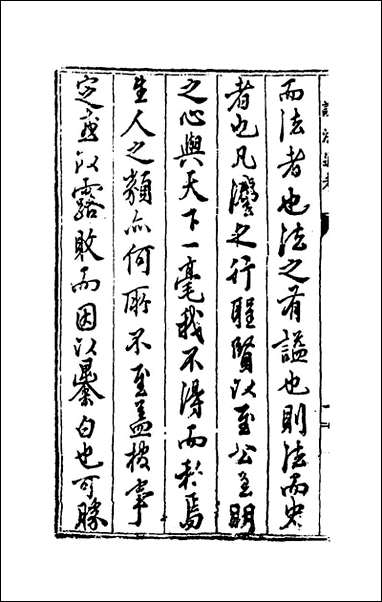 而法者也法之有諡也則法而史
者也凡灋之行聖賢以至公至明
之心與天下一毫我不得而私焉
生人之類亦何所不至蓋枝寧
定衮以露敗而因以暴白也可勝